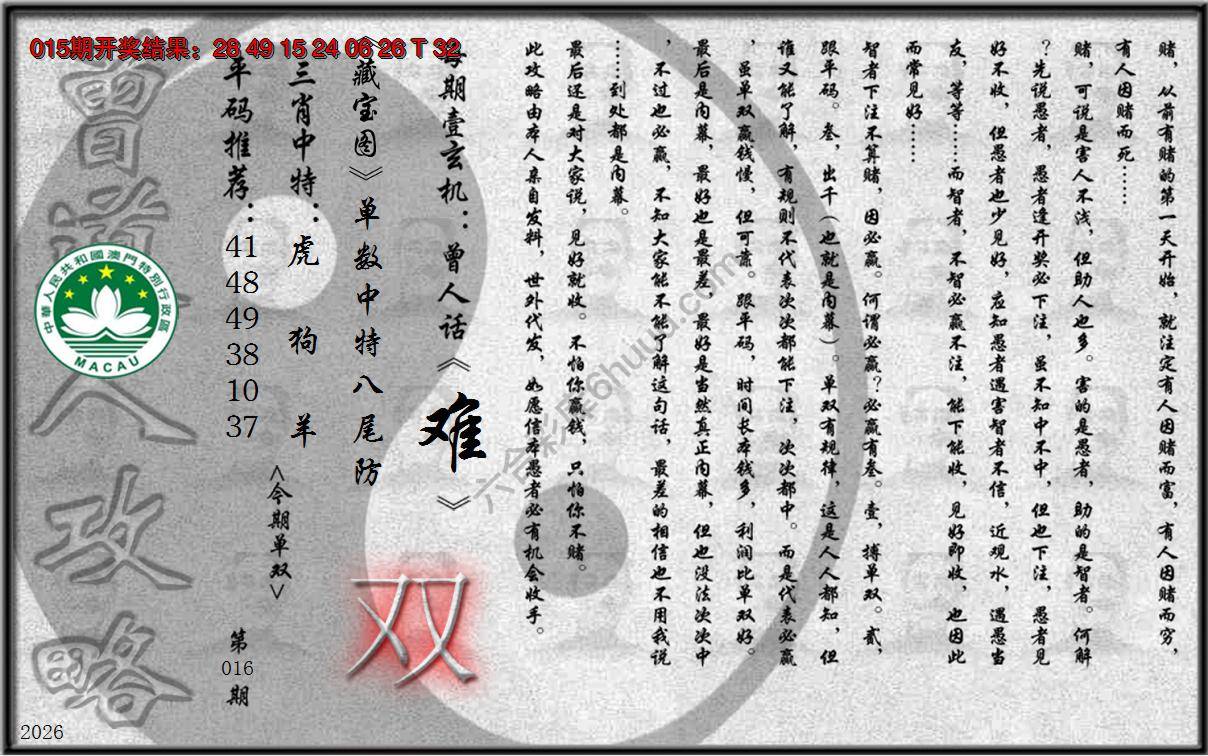 015期开奖结果：28 49 15 24 06 26 T 32
赌，从前有赌的第一天开始，就注定有人因赌而富，有人因赌而穷，
有人因赌而死……
赌，可说是害人不浅，但助人也多。害的是愚者，助的是智者。何解
？先说愚者，愚者逢开奖必下注，虽不知中不中，但也下注，愚者见
好不收，但愚者也少见好，应知愚者遇害智者不信，近观水，遇愚当
友，等等……而智者，不智必赢不注，能下能收，见好即收，也因此
而常见好……
智者下注不算赌，因必赢。何谓必赢？必赢有叁。壹，搏单双。贰，
跟平码。叁，出千（也就是内幕）。单双有规律，这是人人都知，但
谁又能了解，有规则不代表次次都能下注，次次都中。而是代表必赢
，虽单双赢钱慢，但可靠。跟平码，时间长本钱多，利润比单双好。
最后是内幕，最好也是最差，最好是当然真正内幕，但也没法次次中
，不过也必赢，不知大家能不能了解这句话，最差的相信也不用我说
……到处都是内幕。
最后还是对大家说，见好就收。不怕你赢钱，只怕你不赌。
此攻略由本人亲自发料，世外代发，如愿信本愚者必有机会收手。
每期壹玄机：曾人话《难》
《藏宝图》单数中特八尾防
双
三肖中特：虎 狗 羊
<今期单双>
平码推荐：41 48 49 38 10 37
第016期
曾道人攻略
中華人民共和國澳門特別行政區
MACAU
六合彩库6huuu.com
2026